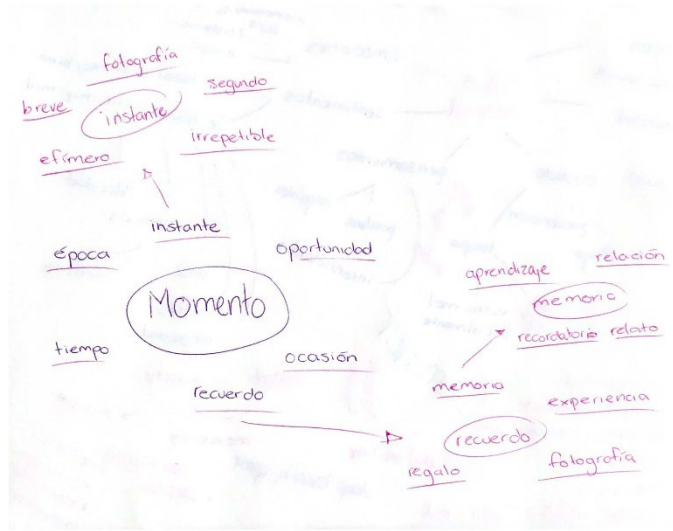 fotografía
segundo
breve
instante
irrepetible
efímero
instante
época
oportunidad
Momento
tiempo
ocasión
recuerdo
relación
aprendizaje
memoria
recordatorio relato
memoria
experiencia
recuerdo
regalo
fotografía